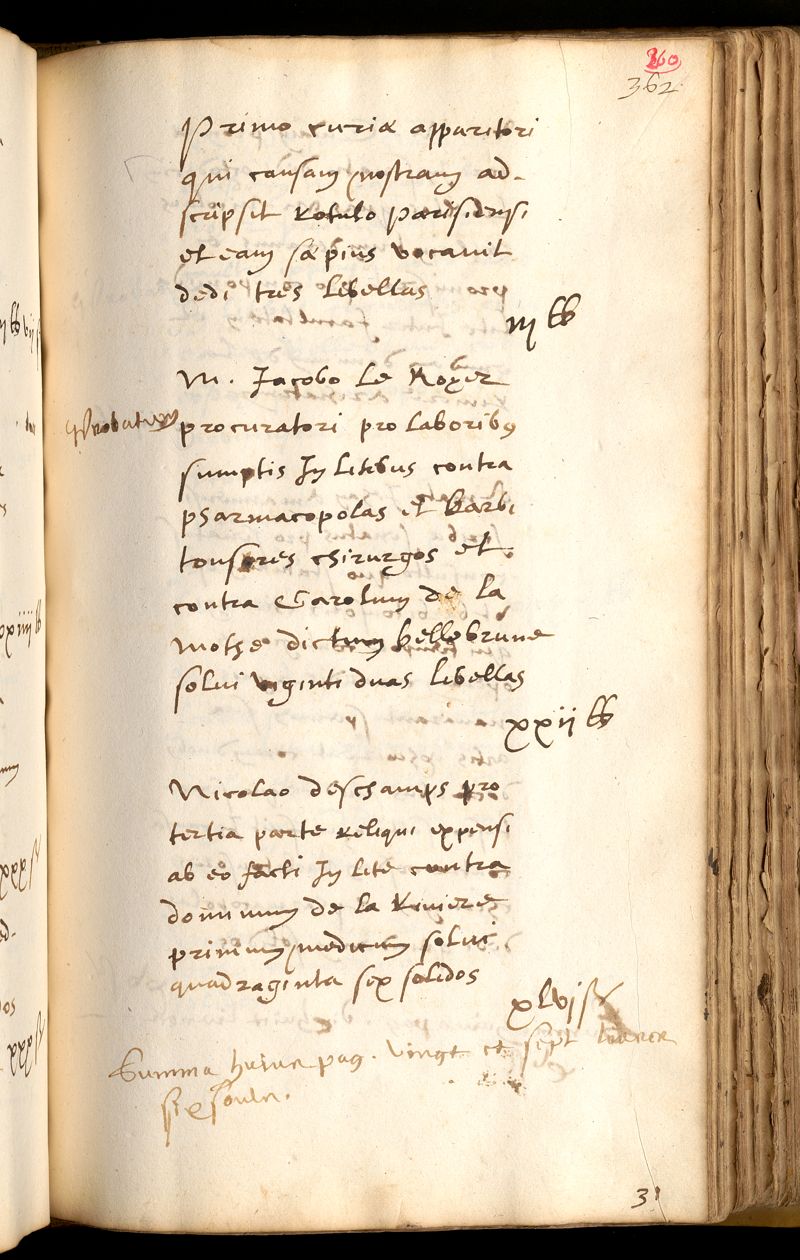 360
362
Primo curiæ apparitori
qui causam nostram ad-
scripsit rotulo parisiensi
et eam sæpius vocavit
dedi tres libellas
iij ₶
M. Jacobo le Royer
procuratori pro laboribus
sumptis In litibus contra
pharmacopolas et barbi
tonsores chirurgos et
contra Carolum de la
mothe dictum bellebrune
solvi viginti duas libellas
xxij ₶
Nicolao deschamps pro
tertia parte reliqui expensi
ab eo facti In lite contra
dominum de la Riviere
primum medicum solvi
quadraginta sex solidos
xlvj ß
Summa huius pag. vingt et sept livres
six soulz.
31